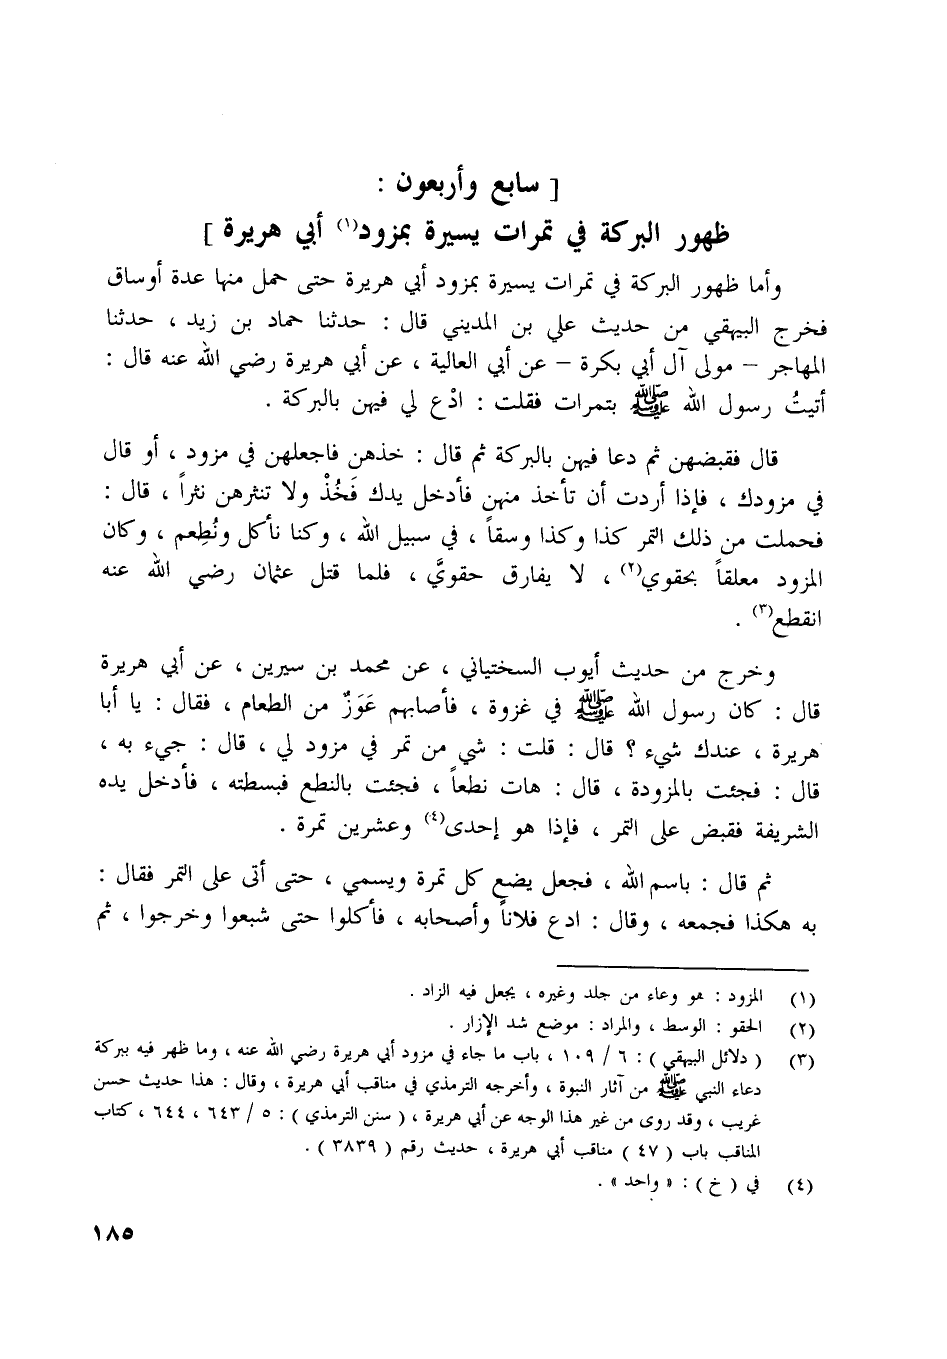 [ سابع وأربعون :
ظهور البركة في تمرات يسيرة بمزود(١) أبي هريرة ]
وأما ظهور البركة في تمرات يسيرة بمزود أبي هريرة حتى حمل منها عدة أوساق
فخرج البيهقي من حديث علي بن المديني قال : حدثنا حماد بن زيد ، حدثنا
المهاجر – مولى آل أبي بكرة – عن أبي العالية ، عن أبي هريرة رضي الله عنه قال :
أتيتُ رسول الله ﷺ بتمرات فقلت : ادْع لي فيهن بالبركة .
قال فقبضهن ثم دعا فيهن بالبركة ثم قال : خذهن فاجعلهن في مزود ، أو قال
في مزودك ، فإذا أردت أن تأخذ منهن فأدخل يدك فَخُذْ ولا تنثرهن نثراً ، قال :
فحملت من ذلك التمر كذا وكذا وسقاً ، في سبيل الله ، وكنا نأكل ونُطِعم ، وكان
المزود معلقاً بحقوي(٢) ، لا يفارق حقويَّ ، فلما قتل عثمان رضي الله عنه
انقطع(٣) .
وخرج من حديث أيوب السختياني ، عن محمد بن سيرين ، عن أبي هريرة
قال : كان رسول الله ﷺ في غزوة ، فأصابهم عَوَزٌ من الطعام ، فقال : يا أبا
هريرة ، عندك شيء ؟ قال : قلت : شي من تمر في مزود لي ، قال : جيء به ،
قال : فجئت بالمزودة ، قال : هات نطعاً ، فجئت بالنطع فبسطته ، فأدخل يده
الشريفة فقبض على التمر ، فإذا هو إحدى(٤) وعشرين تمرة .
ثم قال : باسم الله ، فجعل يضع كل تمرة ويسمي ، حتى أتى على التمر فقال :
به هكذا فجمعه ، وقال : ادع فلاناً وأصحابه ، فأكلوا حتى شبعوا وخرجوا ، ثم
(١) المزود : هو وعاء من جلد وغيره ، يجعل فيه الزاد .
(٢) الحقو : الوسط ، والمراد : موضع شد الإزار .
(٣) ( دلائل البيهقي ) : ٦ / ١٠٩ ، باب ما جاء في مزود أبي هريرة رضي الله عنه ، وما ظهر فيه ببركة
دعاء النبي ﷺ من آثار النبوة ، وأخرجه الترمذي في مناقب أبي هريرة ، وقال : هذا حديث حسن
غريب ، وقد روى من غير هذا الوجه عن أبي هريرة ، ( سنن الترمذي ) : ٥ / ٦٤٣ ، ٦٤٤ ، كتاب
المناقب باب ( ٤٧ ) مناقب أبي هريرة ، حديث رقم ( ٣٨٣٩ ) .
(٤) في ( خ ) : « واحد » .
١٨٥